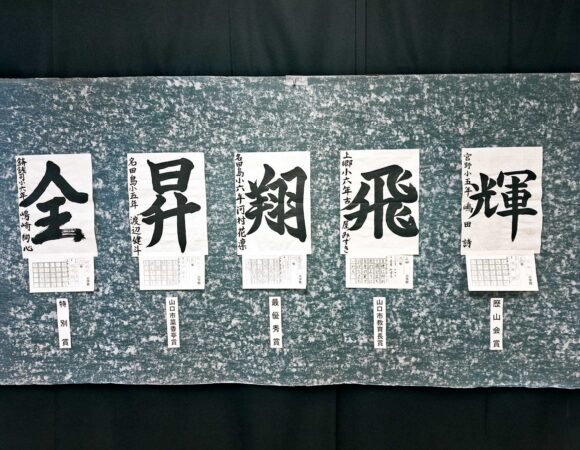 輝
宮野小五年 嶋田 詩
歴山会賞
飛
上郷小六年 古屋みずき
山口市教育長賞
翔
名田島小六年 河村花凛
最優秀賞
昇
名田島小五年 渡辺健斗
山口市菜香亭賞
全
鋳銭司小六年 嶋崎
特別賞